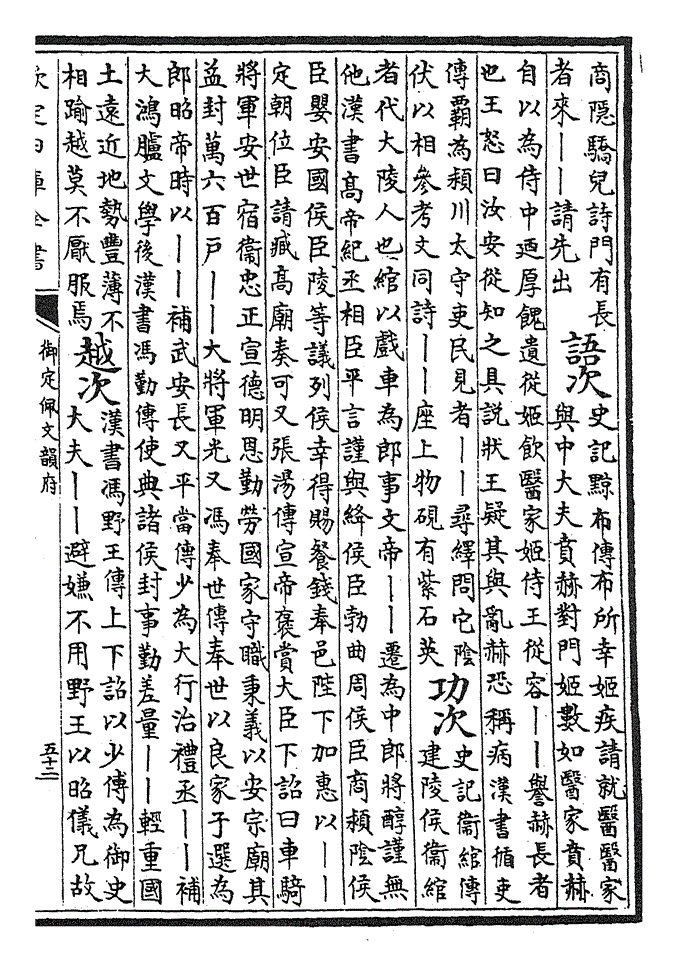 商隱驕兒詩門有長
者來丨丨請先出
語次
史記黥布傳布所幸姬疾請就醫醫家
與中大夫賁赫對門姬數如醫家賁赫
自以為侍中迺厚餽遺從姬飲醫家姬侍王從容丨丨譽赫長者
也王怒曰汝安從知之具説狀王疑其與亂赫恐稱病漢書循吏
傳覇為潁川太守吏民見者丨丨尋繹問它陰
伏以相參考文同詩丨丨座上物硯有紫石英
功次
史記衞綰傳
建陵侯衞綰
者代大陵人也綰以戲車為郎事文帝丨丨遷為中郎將醇謹無
他漢書髙帝紀丞相臣平言謹與絳侯臣勃曲周侯臣商潁陰侯
臣嬰安國侯臣陵等議列侯幸得賜餐錢奉邑陛下加惠以丨丨
定朝位臣請臧髙廟奏可又張湯傳宣帝襃賞大臣下詔曰車騎
將軍安世宿衞忠正宣德明恩勤勞國家守職秉義以安宗廟其
益封萬六百戸丨丨大將軍光又馮奉世傳奉世以良家子選為
郎昭帝時以丨丨補武安長又平當傳少為大行治禮丞丨丨補
大鴻臚文學後漢書馮勤傳使典諸侯封事勤差量丨丨輕重國
土遠近地勢豐薄不
相踰越莫不厭服焉
越次
漢書馮野王傳上下詔以少傅為御史
大夫丨丨避嫌不用野王以昭儀兄故
欽定四庫全書
御定佩文韻府
五十二